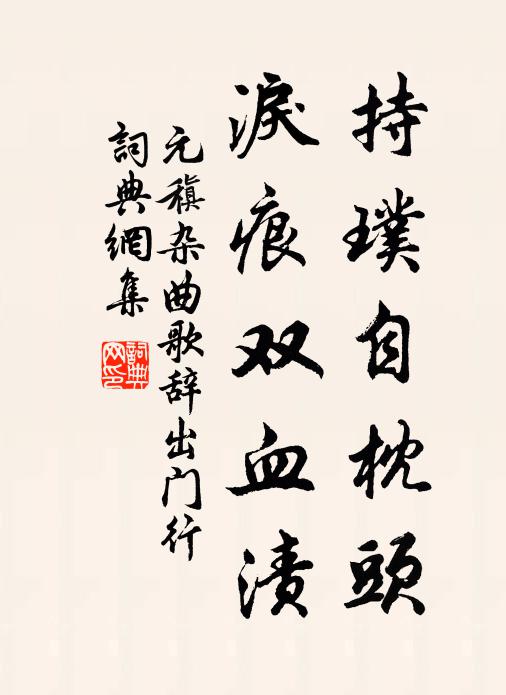 持璞自枕頭
淚痕双血渍
元稹杂曲歌辞出门行
詞典網集
詞典
网印